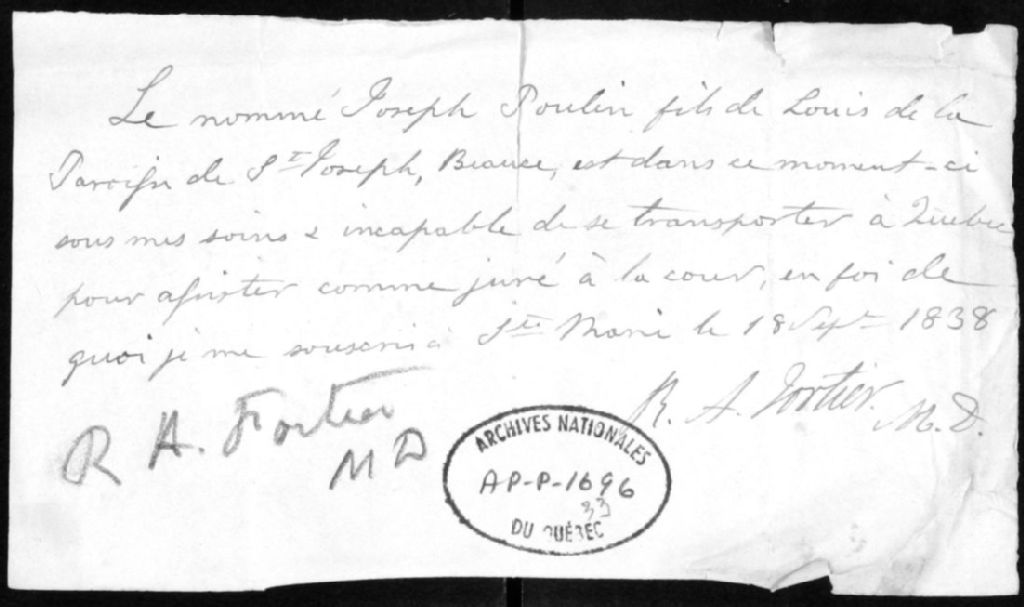 Le nommé Joseph Poulin fils de Louis de la
Paroisse de St Joseph, Beauce, est dans ce moment-ci
sous mes soins & incapable de se transporter à Québec
pour assister comme juré à la cour, en foi de
quoi je me souscris à Ste Marie le 18 Sept 1838
R. A. Fortier. M.D.
R A. Fortier
MD
ARCHIVES NATIONALES
AP-P-1696
33
DU QUÉBEC